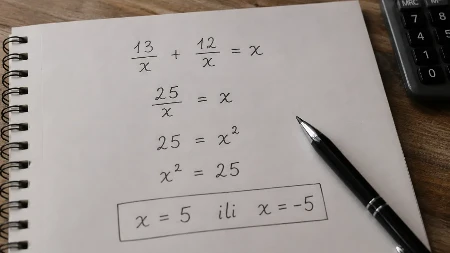 13/x + 12/x = x
25/x = x
25 = x²
x² = 25
x = 5 ili x = -5
MRC M
7 8
4 5
1 2
0